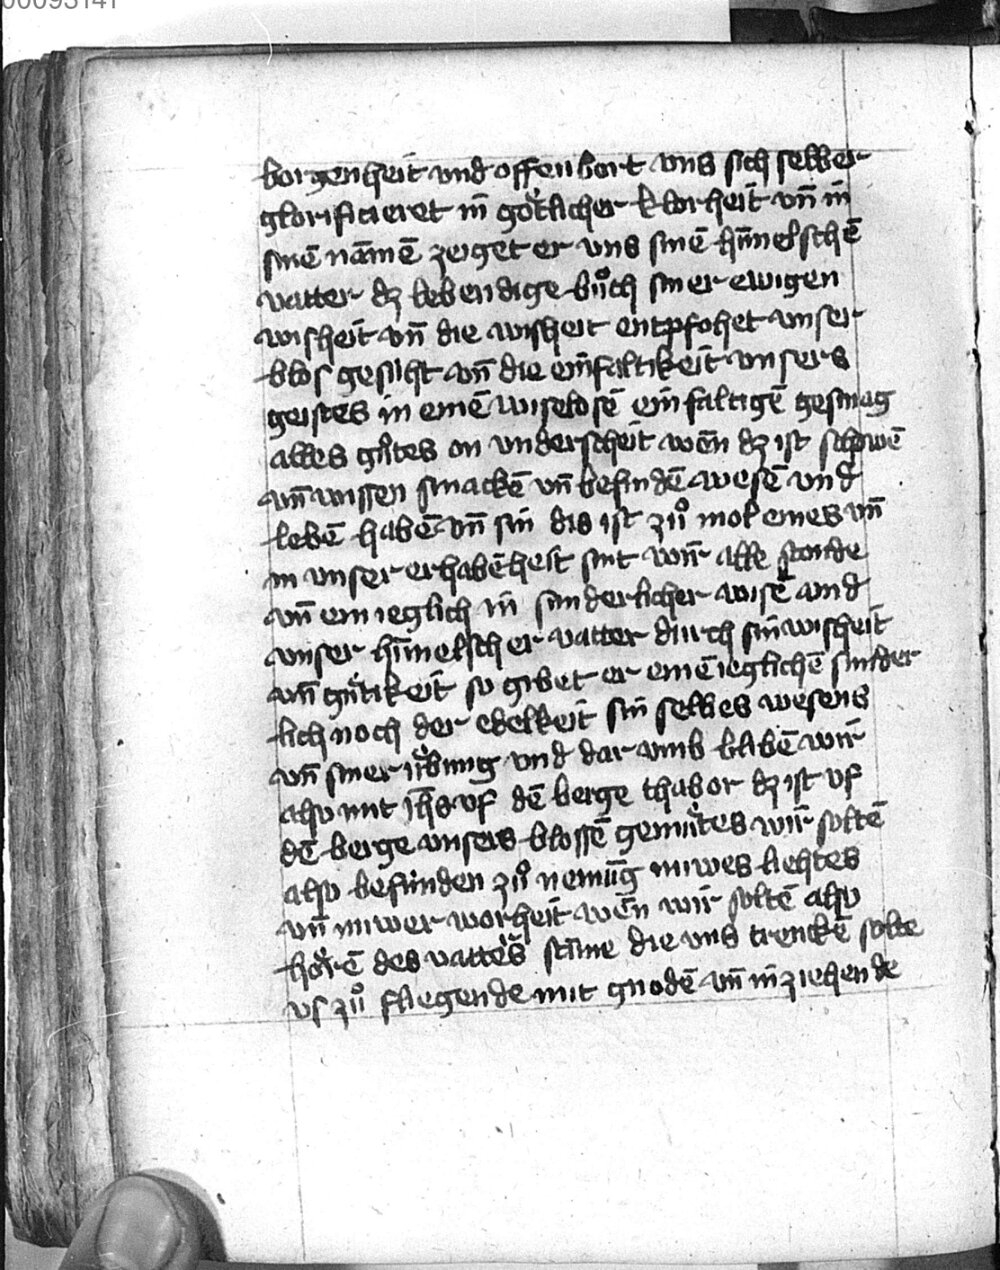 00093141
borgenheit vnd offenbort vns sich selber
glorificieret in goͤtlicher klorheit vn̄ in
sinē namē zeiget er vns sinē him̄elschē
vatter dz lebendige buͦch siner ewigen
wisheit vn̄ die wisheit entpfohet vnser
blos gesiht vn̄ die einfaltikeit vnsers
geistes in einē wiselosē einfaltigē gesmag
alles guͦtes on vnderscheit wēn dz ist schowē
vn̄ wissen smackē vn̄ befindē wesē vnd
lebē habē vn̄ sin dis ist zuͦ mol eines vn̄
in vnser erhabēheit sint wir alle
vn̄ ein ieglich in sunderlicher wise vnd
vnser him̄elscher vatter durch sin wisheit
vn̄ guͤtikeit so gibet er einē ieglichē sunder
lich noch der edelkeit sin selbes wesens
vn̄ siner uͤbung vnd dar vmb blibē wir
also mit jh̄s vf dē berge thabor dz ist vf
dē berge vnsers blossē gemuͤtes wir soltē
also befinden zuͦ nemūg niwes liehtes
vn̄ niwer worheit wēn wir soltē also
hoͤrē des vatters stim̄e die vns trenckē solte
vs zuͦ fliegende mit gnodē vn̄ in ziehende